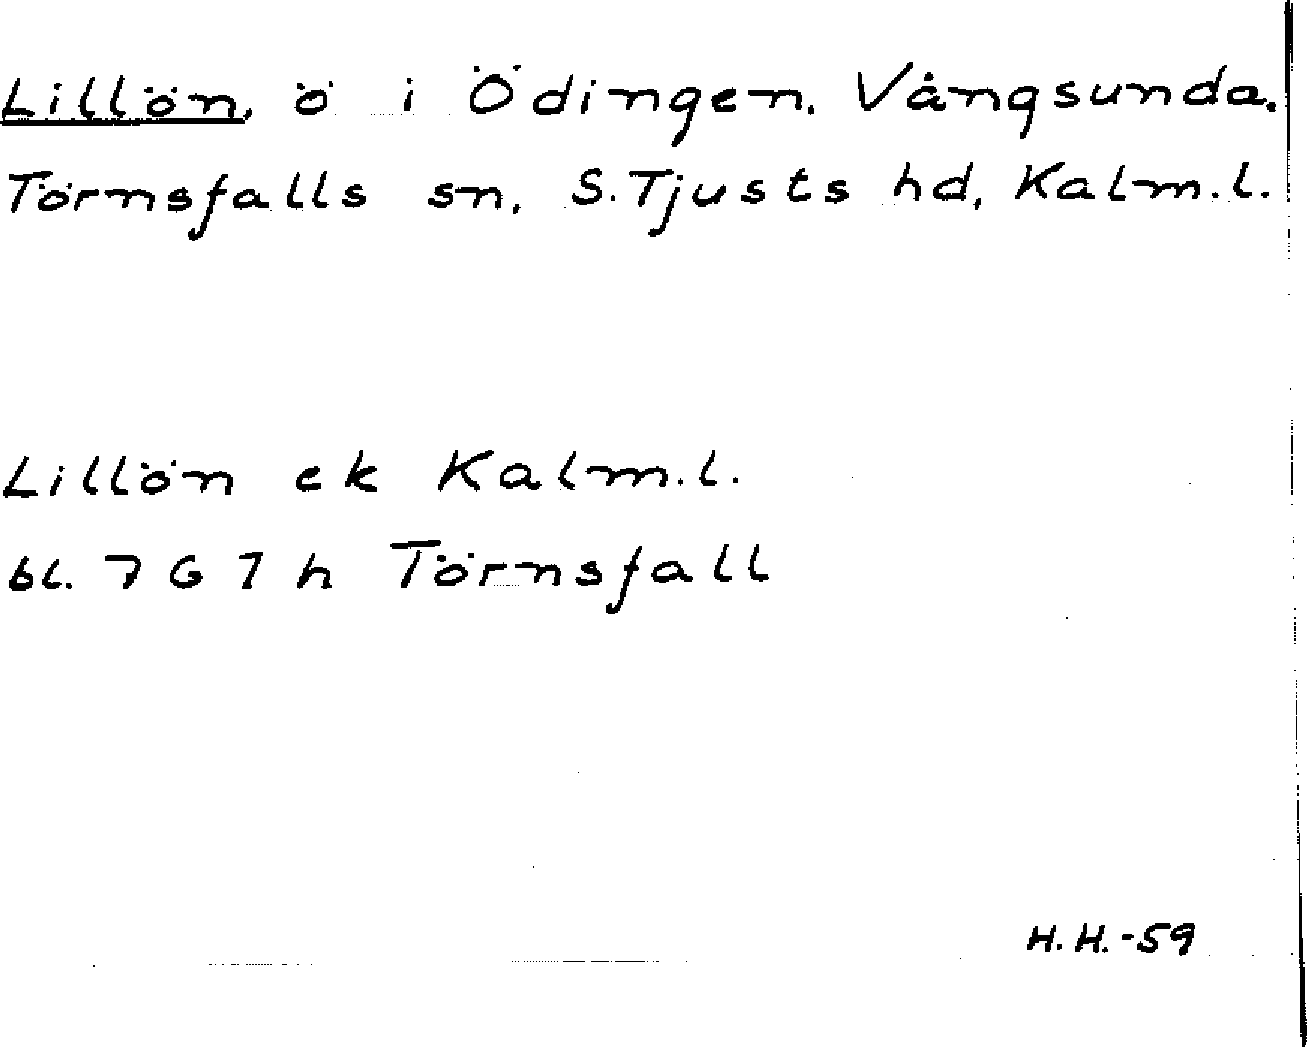 Lillön, ö i Ödingen. Vångsunda.
Törnsfalls sn, S.Tjusts hd, Kalm.l.
Lillön ek Kalm.l.
bl. 7 G 7 h Törnsfall
H.H.-59